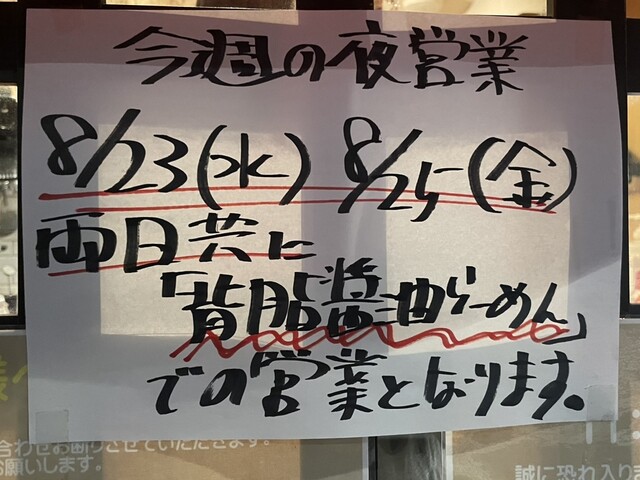 今週の夜営業
8/23(水) 8/25(金)
両日共に
「背脂醤油らーめん」
での営業となります。
合わせお断りさせていただきます。
お願いします。
誠に恐れ入りま